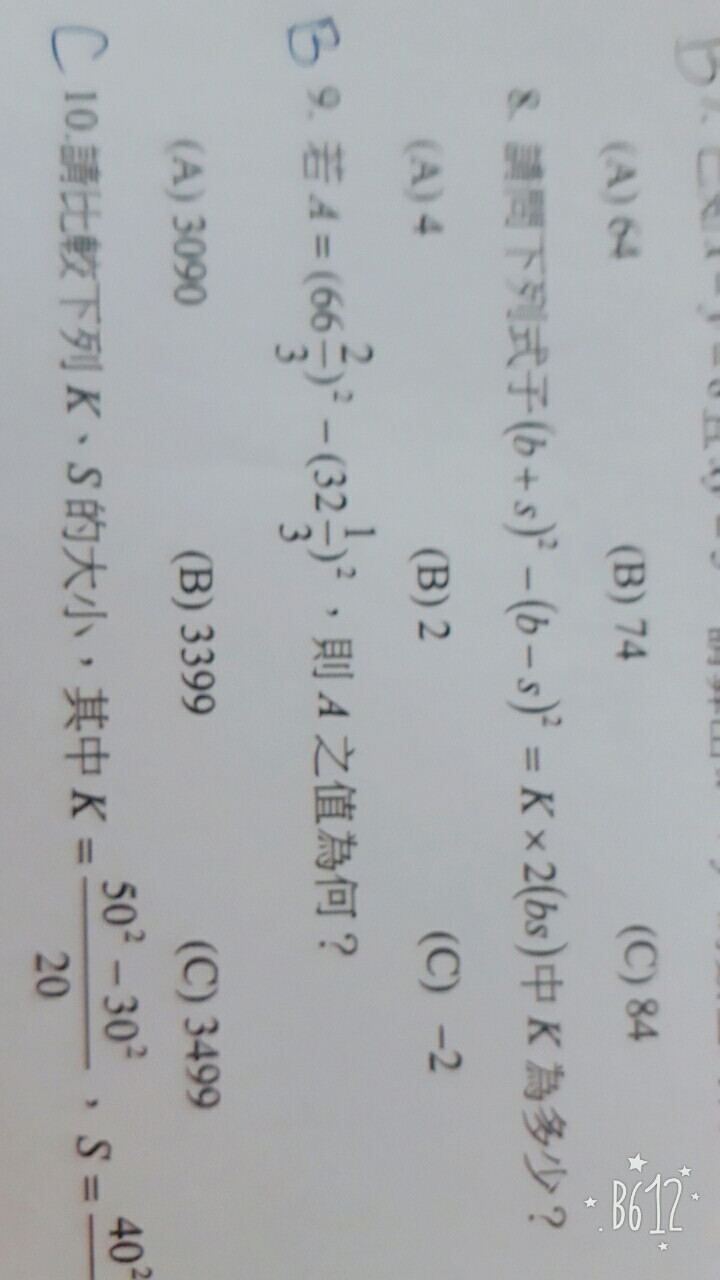 (A) 64 (B) 74 (C) 84
8. 請問下列式子(b+s)² −(b−s)² = K×2(bs)中 K 為多少？
(A) 4 (B) 2 (C) −2
B 9. 若 A = (66 2/3)² − (32 1/3)²，則 A 之值為何？
(A) 3090 (B) 3399 (C) 3499
C 10.請比較下列 K、S 的大小，其中 K = (50² − 30²)/20，S = 40²
B612